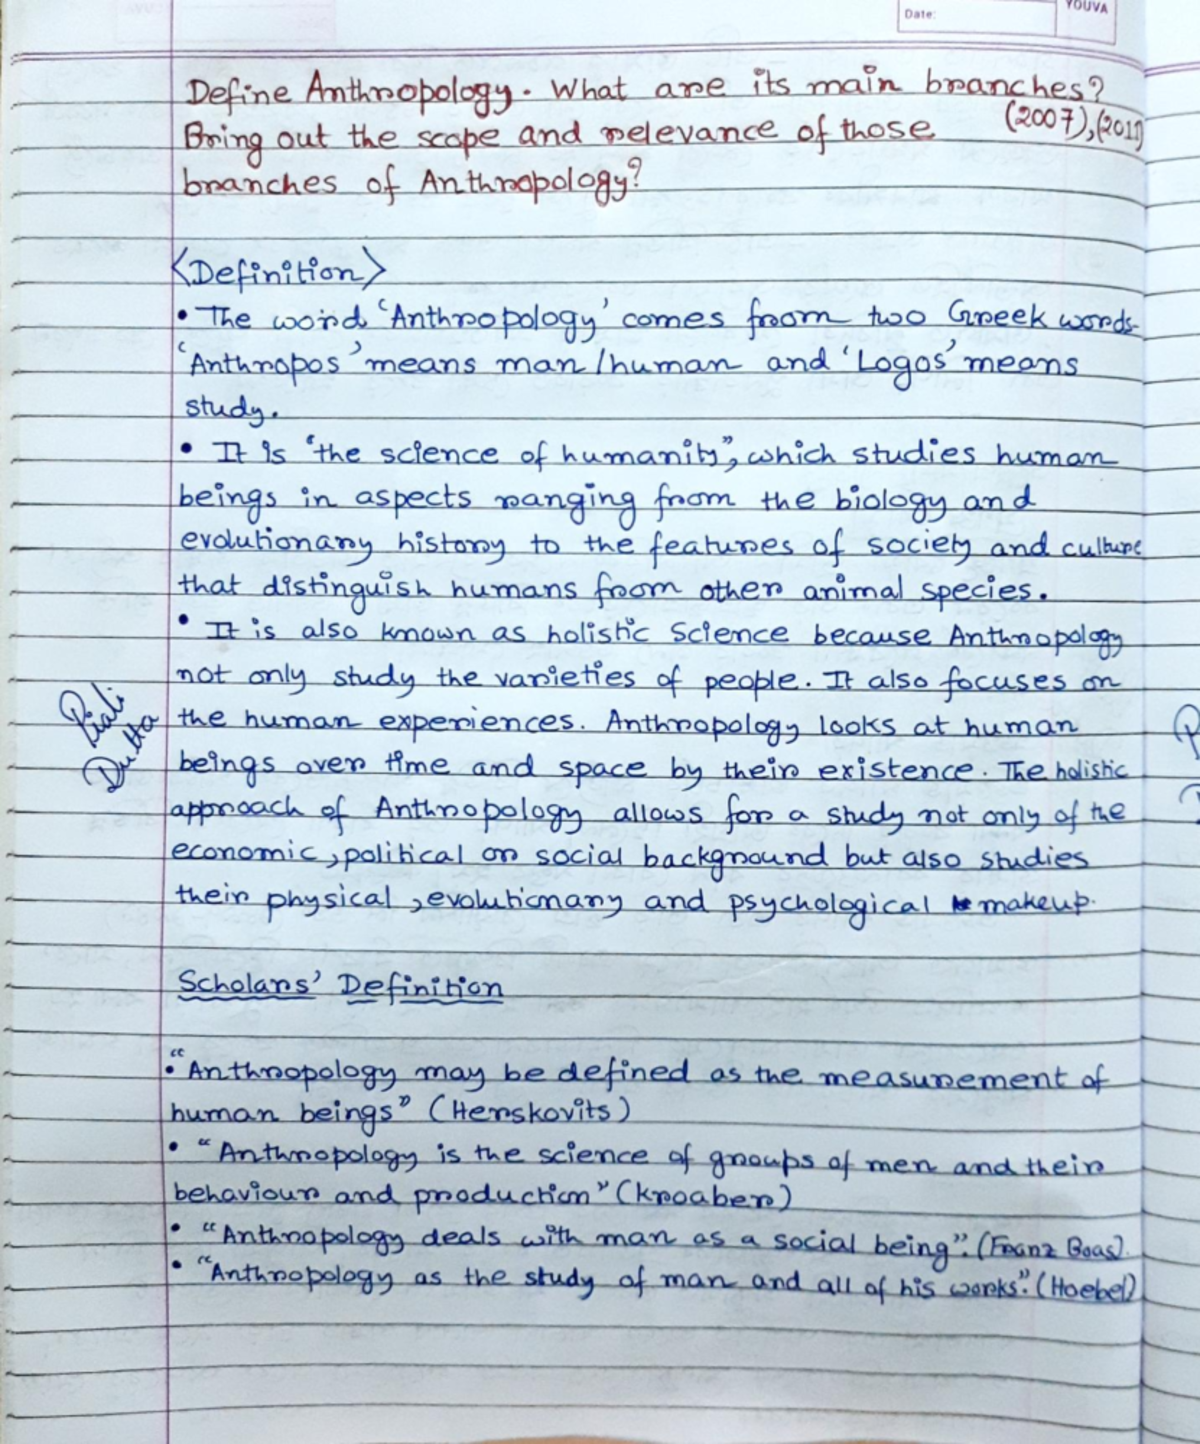 Date:
YOUVA
Define Anthropology. What are its main branches?
(2007), (2011)
Bring out the scope and relevance of those
branches of Anthropology?
<Definition>
• The word 'Anthropology' comes from two Greek words-
'Anthropos' means man/human and 'Logos' means
study.
• It is "the science of humanity", which studies human
beings in aspects ranging from the biology and
evolutionary history to the features of society and culture
that distinguish humans from other animal species.
• It is also known as holistic Science because Anthropology
not only study the varieties of people. It also focuses on
the human experiences. Anthropology looks at human
beings over time and space by their existence. The holistic
approach of Anthropology allows for a study not only of the
economic, political or social background but also studies
their physical, evolutionary and psychological makeup.
Piali
Dutta
Scholars' Definition
• "Anthropology may be defined as the measurement of
human beings" (Herskovits)
• "Anthropology is the science of groups of men and their
behaviour and production" (Kroaber)
• "Anthropology deals with man as a social being". (Franz Boas).
• "Anthropology as the study of man and all of his works". (Hoebel)